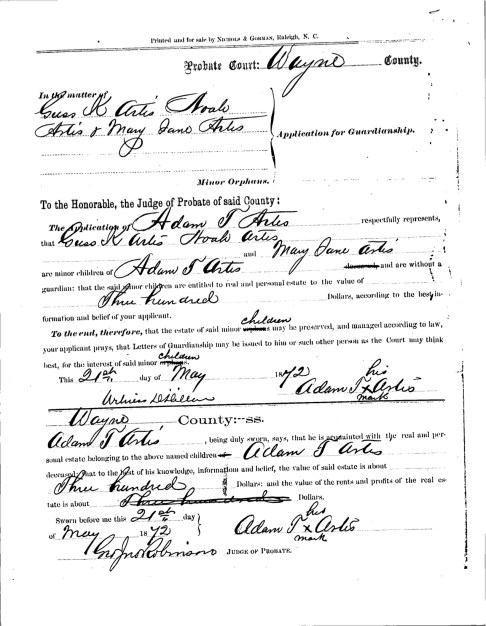 Printed and for sale by NICHOLS & GORMAN, Raleigh, N. C.
Probate Court: Wayne County.
In the matter of
Guss K Artis Noah
Artis & Mary Jane Artis
Application for Guardianship.
Minor Orphans.
To the Honorable, the Judge of Probate of said County:
The Application of Adam T Artis respectfully represents,
that Guss K Artis Noah Artis
and Mary Jane Artis
are minor children of Adam T Artis deceased, and are without a
guardian: that the said minor children are entitled to real and personal estate to the value of
Three hundred Dollars, according to the best in-
formation and belief of your applicant.
children
To the end, therefore, that the estate of said minor orphans may be preserved, and managed according to law,
your applicant prays, that Letters of Guardianship may be issued to him or such other person as the Court may think
children
best, for the interest of said minor orphans.
This 21st day of May 1872 his
Adam T x Artis
mark
Wayne County:--ss.
Adam T Artis, being duly sworn, says, that he is acquainted with the real and per-
sonal estate belonging to the above named children of Adam T Artis
deceased, that to the best of his knowledge, information and belief, the value of said estate is about
Three hundred Dollars: and the value of the rents and profits of the real es-
tate is about Three hundred Dollars.
Sworn before me this 21st day
of May 1872
his
Adam T x Artis
mark
Robinson JUDGE OF PROBATE.